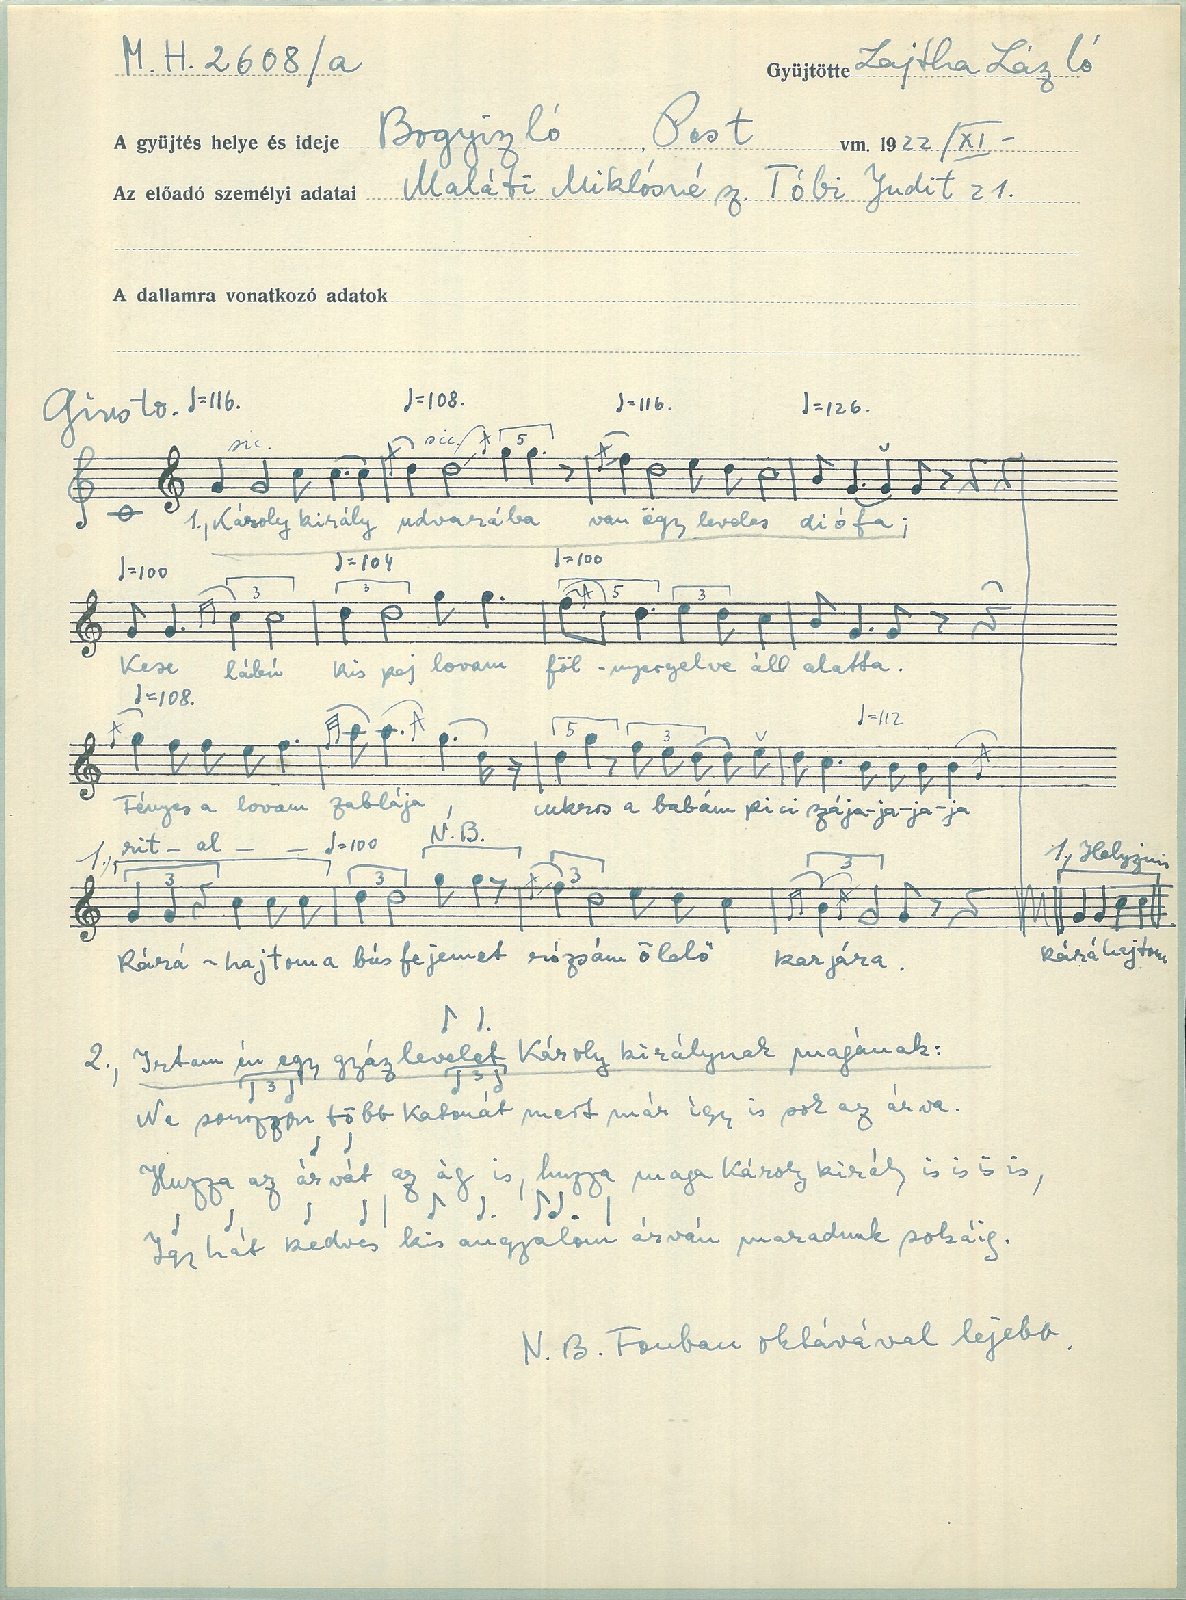 M. H. 2608/a
Gyüjtötte Lajtha László
A gyüjtés helye és ideje Bogyiszló, Pest vm. 1922/XI –
Az előadó személyi adatai Maláti Miklósné sz. Tóbi Judit 21.
A dallamra vonatkozó adatok
Giusto. ♩=116. ♩=108. ♩=116. ♩=126.
sic. sic. 5
1., Károly király udvarába van ëgy leveles diófa;
♩=100 ♩=104 ♩=100
3 3 5 3
Kese lábú kis pej lovam föl-nyergelve áll alatta.
♩=108. ♩=112
5 3
Fényes a lovam zablája, cukros a babám pici szája-ja-ja-ja
1., rit – al – – ♩=100 N.B. 1., Helyzni
3 3 3 3
Rárá-hajtom a bús fejemet rózsám ölelő karjára. Ráráhajtom
2., Irtam én egy gyász levelet Károly királynak magának:
3 3
Ne sorozzon több katonát mert már így is sok az árva.
Huzza az árvát az ág is, huzza maga Károly király is is is is,
Igy hát kedves kis angyalom árván maradunk sokáig.
N. B. Fonban oktávával lejebb.